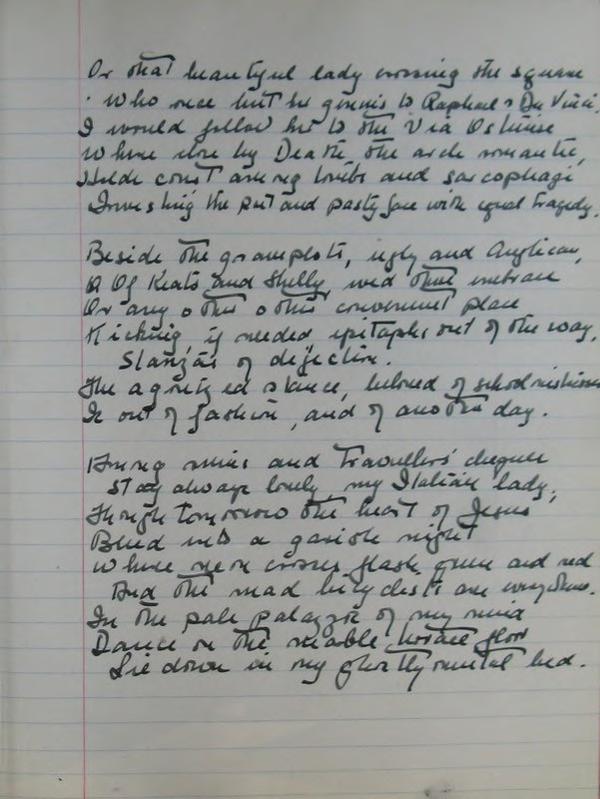 Or that beautiful lady crossing the square
Who once lent her genius to Raphael & Da Vinci.
I would follow her to the Via Ostiense
Where close by Death, the arch romantic,
Holds court among tombs and sarcophagi
Investing the pert and pasty face with equal tragedy.
Beside the grassplots, ugly and Anglican,
Of Keats and Shelly, wed that embrace
Or any other other convenient place
Kicking, if needed, epitaphs out of the way,
Stanzas of dejection.
The agonized stance, beloved of schoolmistresses
Is out of fashion, and of another day.
Among ruins and travellers' cheques
Stay always lovely, my Italian lady,
Though tomorrow the heart of Jesus
Bleed into a garish night
Where neon crosses flash green and red
And the mad bicyclists are everywhere.
In the pale palazzo of my mind
Dance on the marble floor
Lie down in my ghostly mental bed.